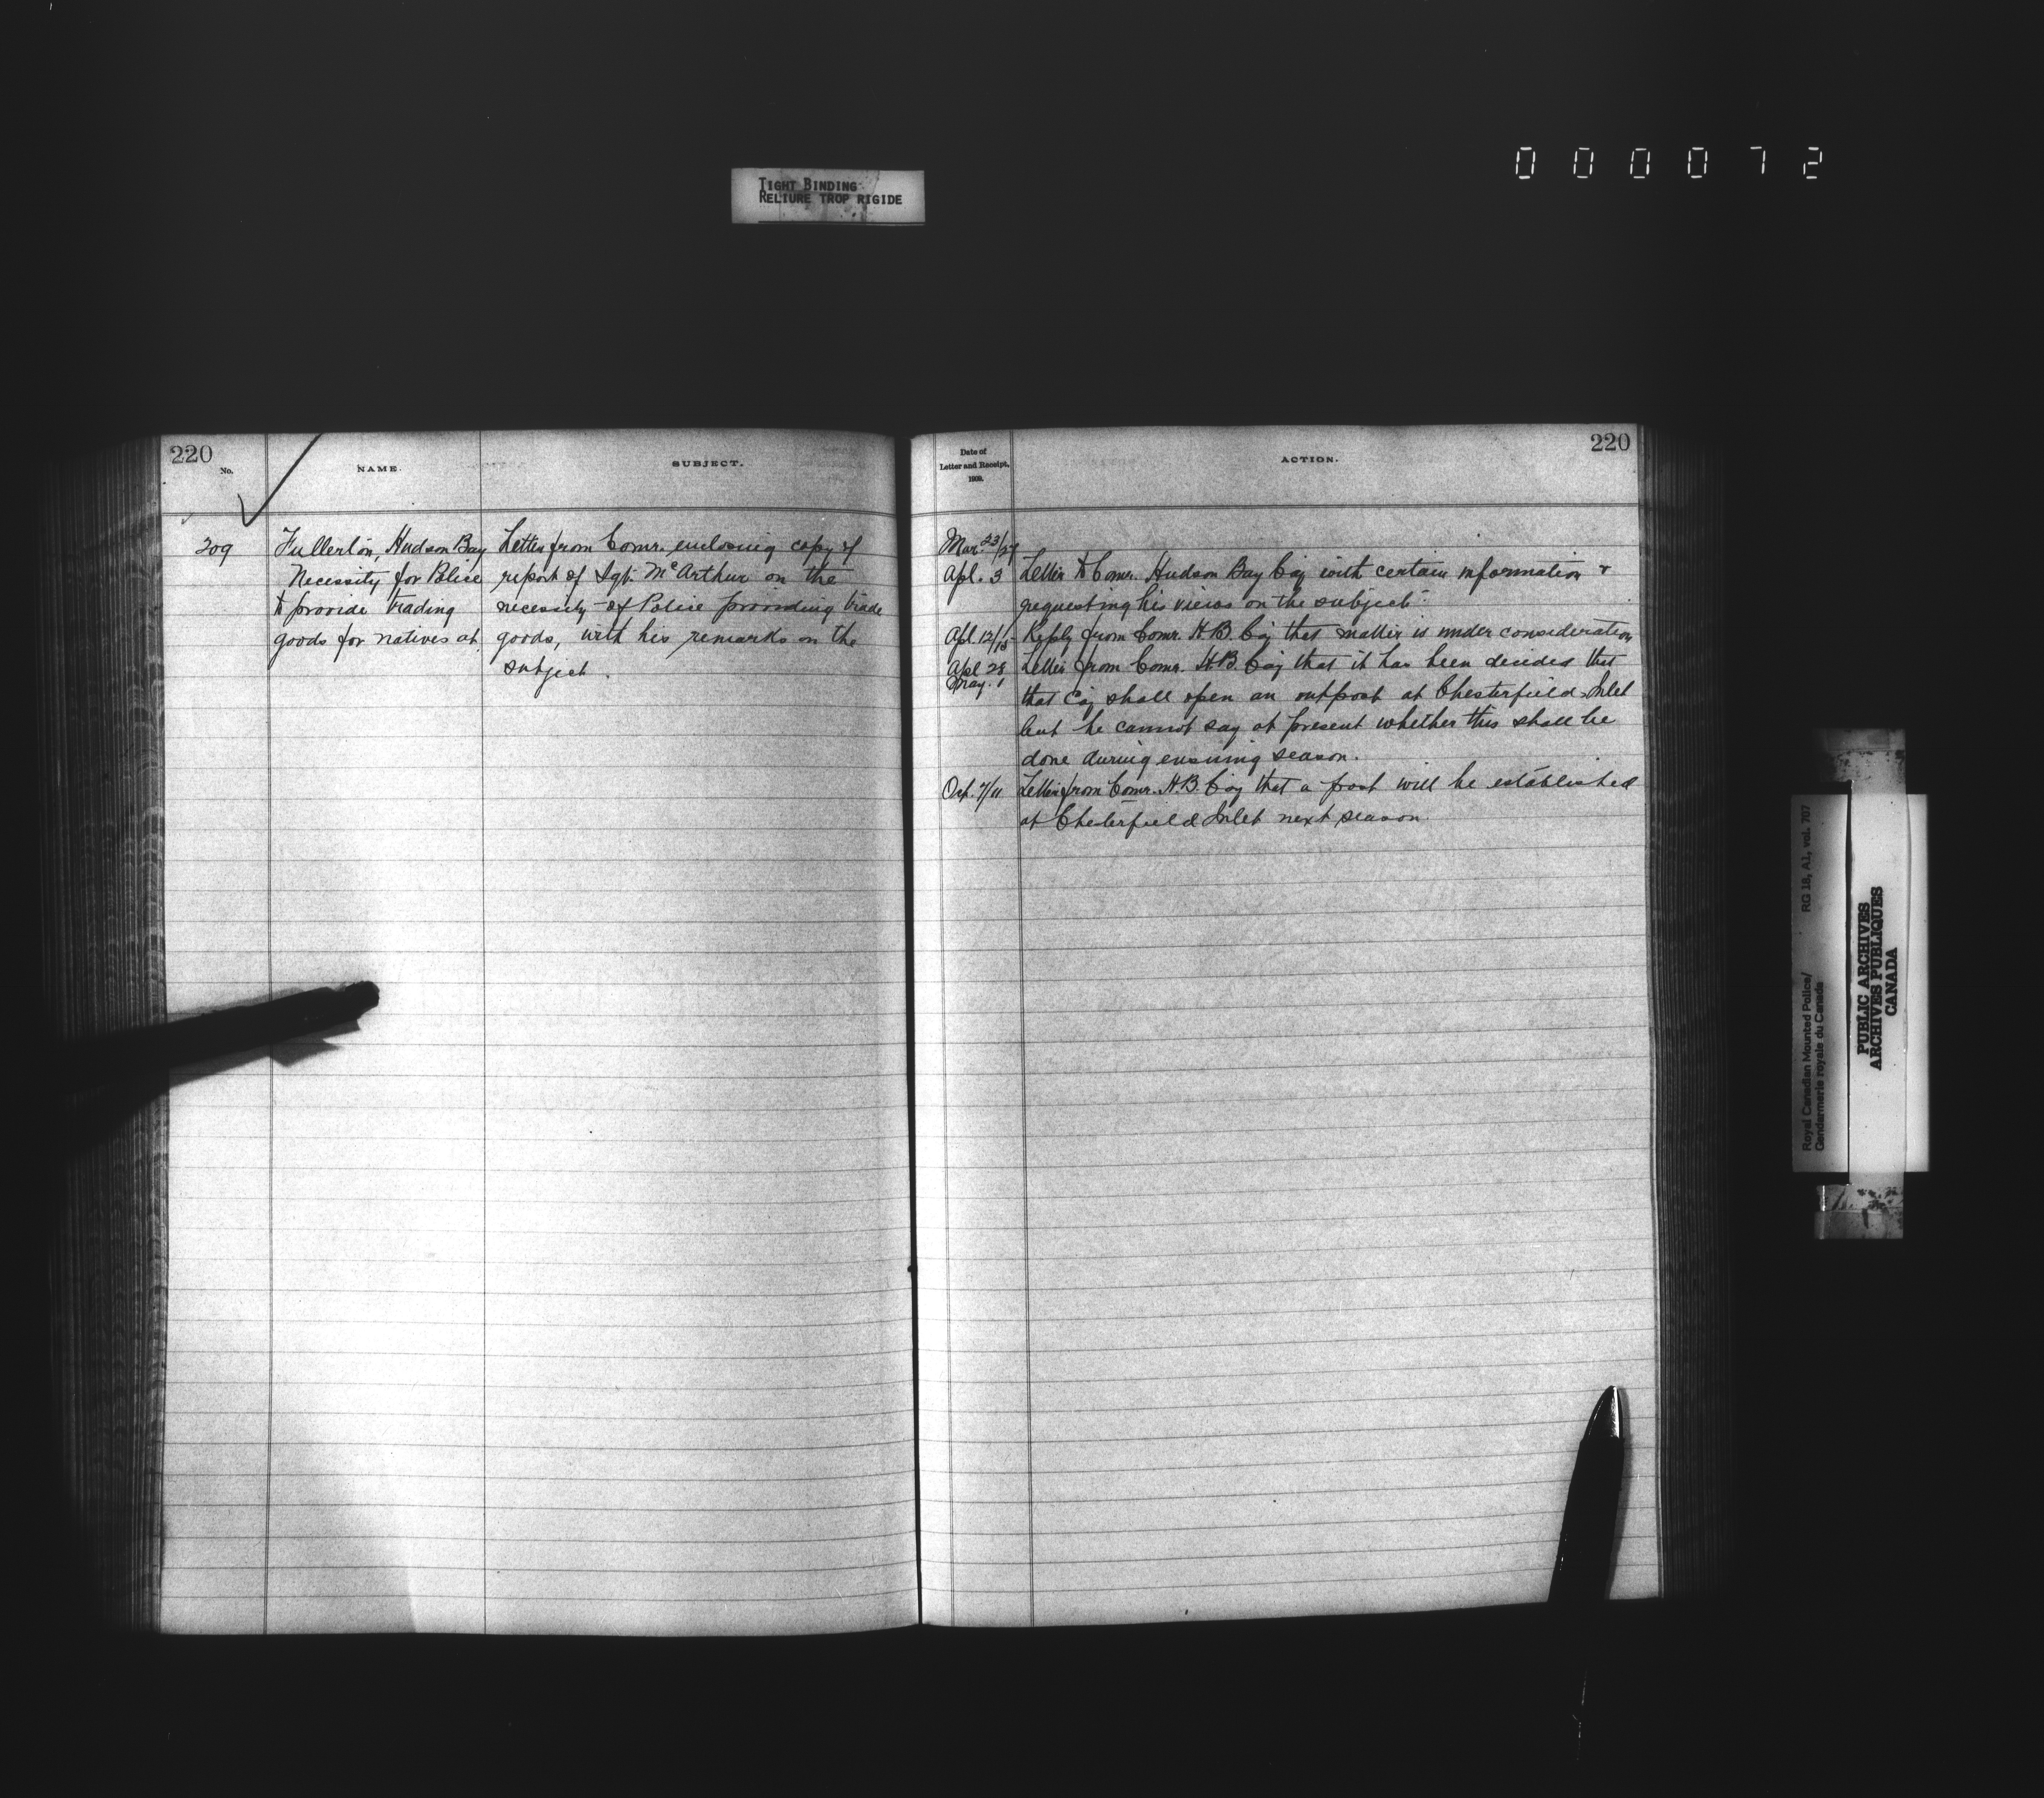 0 0 0 0 7 2
TIGHT BINDING
RELIURE TROP RIGIDE
220
No.
NAME.
SUBJECT.
209
Fullerton, Hudson Bay
Necessity for Police
to provide trading
goods for natives at.
Letter from Comr. enclosing copy of
report of Sgt. McArthur on the
necessity of Police providing trade
goods, with his remarks on the
subject.
Date of
Letter and Receipt,
1909.
ACTION.
220
Mar. 23/29
Apl. 3 Letter to Comr. Hudson Bay Coy with certain information &
requesting his views on the subject.
Apl. 12/15 Reply from Comr. H.B. Coy that matter is under consideration
Apl 28 Letter from Comr. H.B. Coy that it has been decided that
May. 1
that Coy shall open an outpost at Chesterfield Inlet
but he cannot say at present whether this shall be
done during ensuing season.
Oct. 7/11 Letter from Comr. H.B. Coy that a post will be established
at Chesterfield Inlet next season.
Royal Canadian Mounted Police/
Gendarmerie royale du Canada
RG 18, A1, vol. 707
PUBLIC ARCHIVES
ARCHIVES PUBLIQUES
CANADA